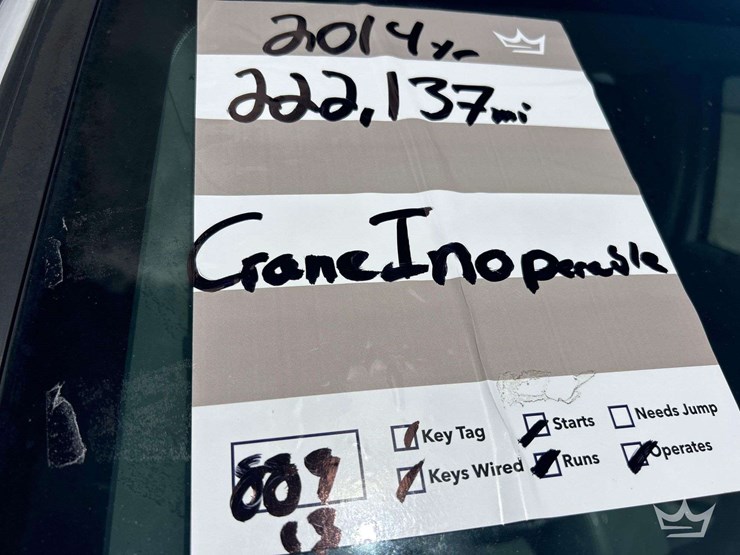 2014 yr
222,137 mi
Crane Inoperable
Key Tag Starts Needs Jump
Keys Wired Runs Operates